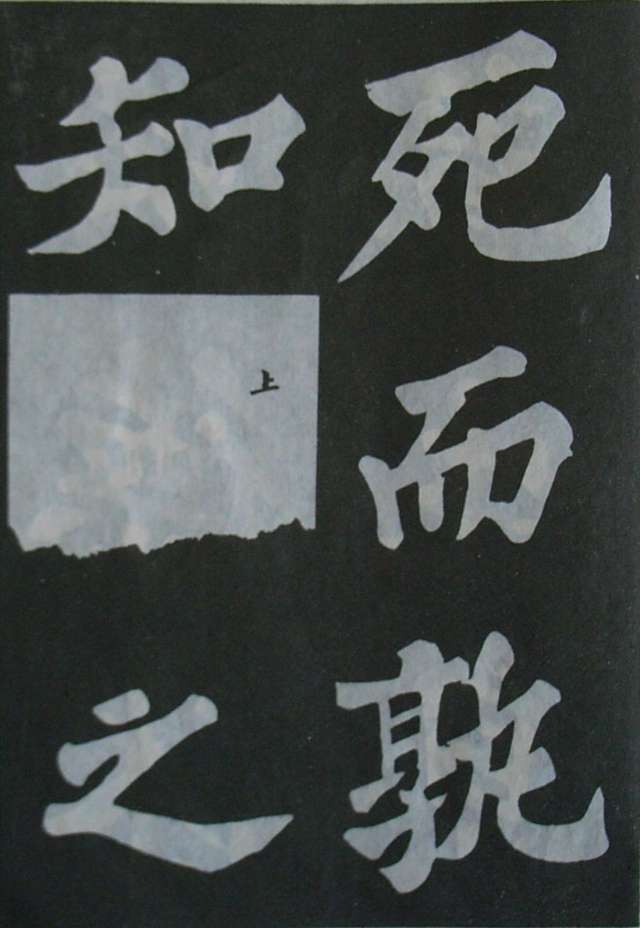 死而孰
知上之